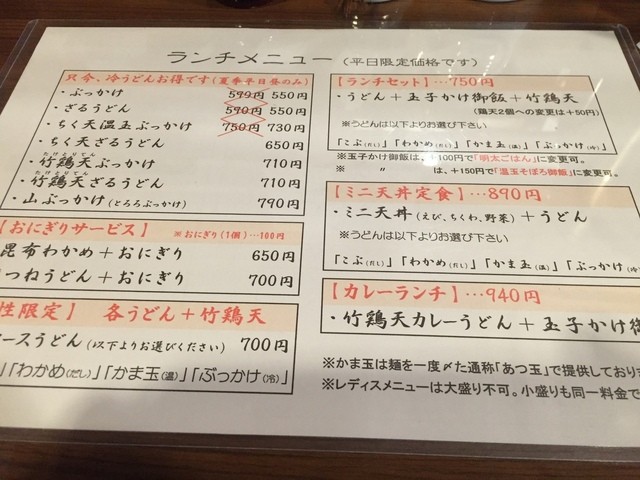 ランチメニュー（平日限定価格です）
只今、冷うどんお得です（夏季平日昼のみ）
・ぶっかけ 590円 550円
・ざるうどん 590円 550円
・ちく天温玉ぶっかけ 750円 730円
・ちく天ざるうどん 650円
・竹鶏天ぶっかけ 710円
・竹鶏天ざるうどん 710円
・山ぶっかけ（とろろぶっかけ） 790円
【おにぎりサービス】 ※おにぎり（1個）…100円
昆布わかめ＋おにぎり 650円
つねうどん＋おにぎり 700円
性限定】 各うどん＋竹鶏天
ースうどん（以下よりお選びください） 700円
」「わかめ（だし）」「かま玉（温）」「ぶっかけ（冷）」
【ランチセット】…750円
・うどん＋玉子かけ御飯＋竹鶏天
（鶏天2個への変更は＋50円）
※うどんは以下よりお選び下さい
「こぶ（だし）」「わかめ（だし）」「かま玉（温）」「ぶっかけ（冷）」
※玉子かけ御飯は、＋100円で「明太ごはん」に変更可。
※ 〃 は、＋150円で「温玉そぼろ御飯」に変更可。
【ミニ天丼定食】…890円
・ミニ天丼（えび、ちくわ、野菜）＋うどん
※うどんは以下よりお選び下さい
「こぶ（だし）」「わかめ（だし）」「かま玉（温）」「ぶっかけ（冷）
【カレーランチ】…940円
・竹鶏天カレーうどん＋玉子かけ御
※かま玉は麺を一度〆た通称「あつ玉」で提供しており
※レディスメニューは大盛り不可。小盛りも同一料金で